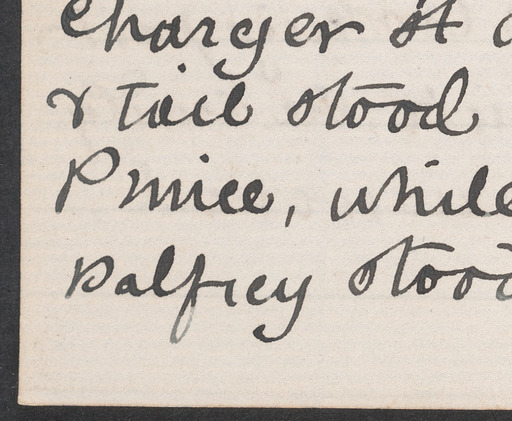 charger st
& tail stood
Prince, while
palfrey stood